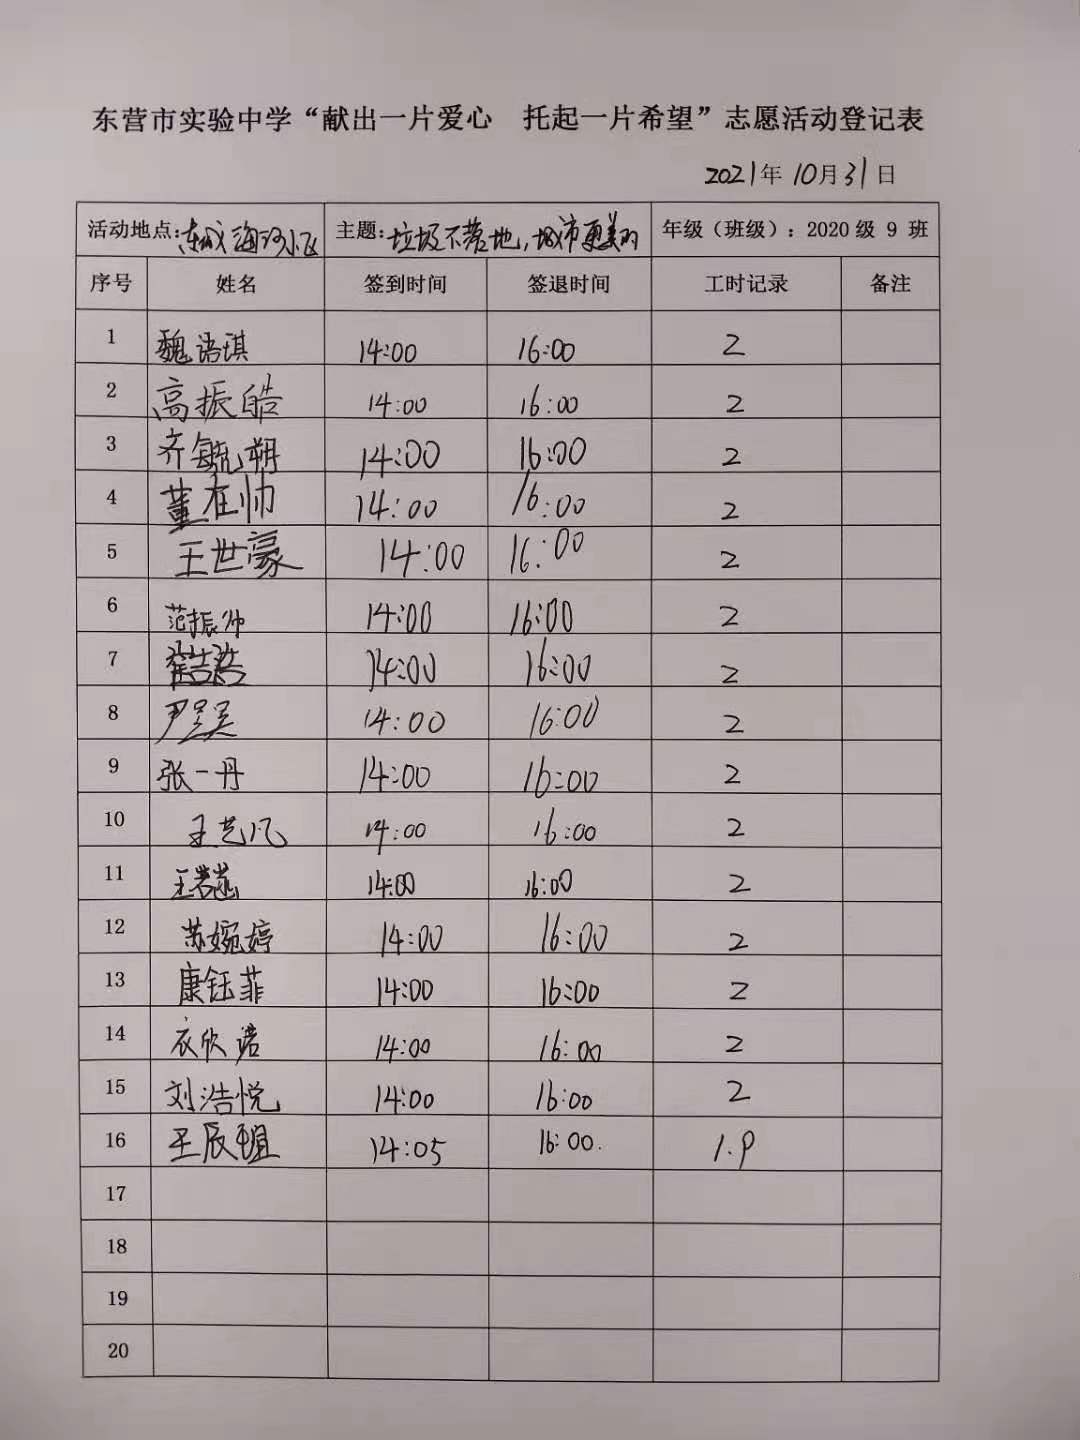 东营市实验中学“献出一片爱心 托起一片希望”志愿活动登记表
2021年10月31日
活动地点:东城海河小区 主题:垃圾不落地,城市更美丽 年级(班级):2020级9班
序号 姓名 签到时间 签退时间 工时记录 备注
1 魏语琪 14:00 16:00 2
2 高振皓 14:00 16:00 2
3 齐毓朔 14:00 16:00 2
4 董在帅 14:00 16:00 2
5 王世豪 14:00 16:00 2
6 范振帅 14:00 16:00 2
7 14:00 16:00 2
8 尹昊 14:00 16:00 2
9 张一丹 14:00 16:00 2
10 王艺凡 14:00 16:00 2
11 王若菡 14:00 16:00 2
12 苏婉婷 14:00 16:00 2
13 康钰菲 14:00 16:00 2
14 衣欣诺 14:00 16:00 2
15 刘浩悦 14:00 16:00 2
16 王辰 14:05 16:00. 1.9
17
18
19
20